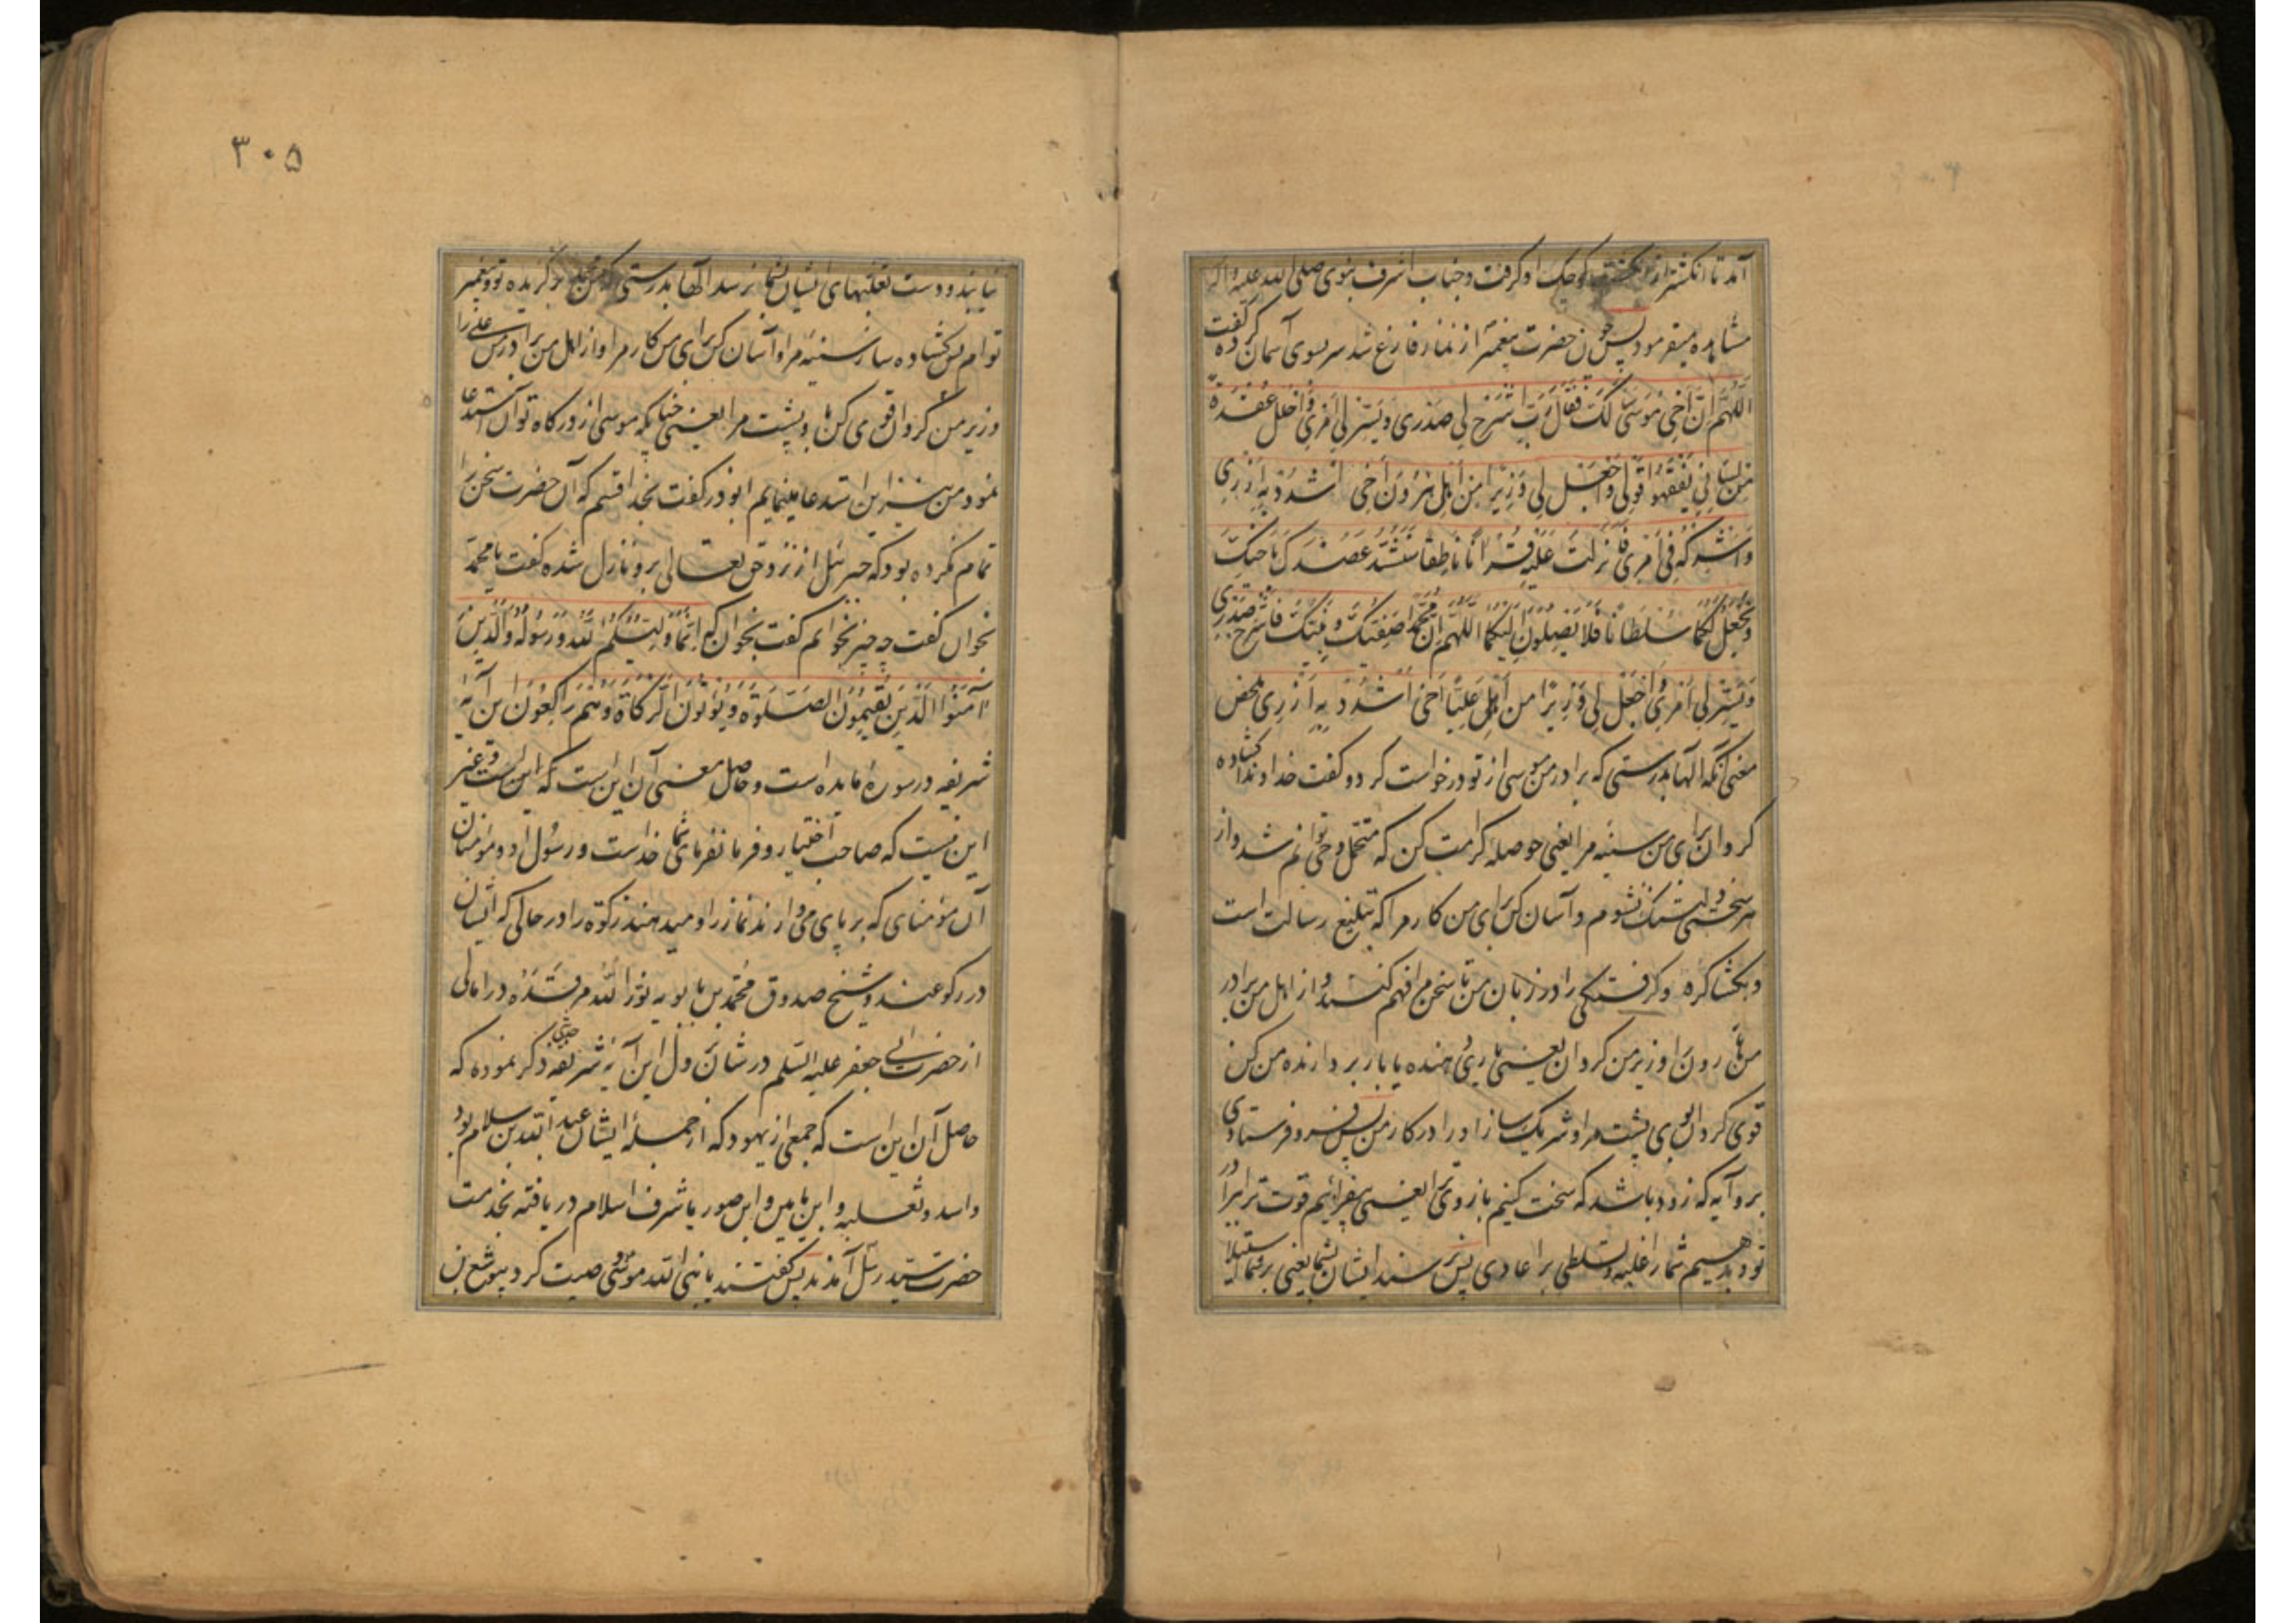 آمد تا انگشتر از انگشت کوچک او گرفت و جناب اشرف نبوی صلی الله علیه و آله
مشاهده میفرمود پس چون حضرت پیغمبر از نماز فارغ شد سر بسوی آسمان کرده گفت
اَللّٰهُمَّ اِنَّ اَخِی مُوسَی سَئَلَکَ فَقَالَ رَبِّ اشْرَحْ لِی صَدْرِی وَیَسِّرْ لِی اَمْرِی وَاحْلُلْ عُقْدَةً
مِنْ لِسَانِی یَفْقَهُوا قَوْلِی وَاجْعَلْ لِی وَزِیرًا مِنْ اَهْلِی هٰرُونَ اَخِی اُشْدُدْ بِهِ اَزْرِی
وَاَشْرِکْهُ فِی اَمْرِی فَاَنْزَلْتَ عَلَیْهِ قُرْاٰنًا نَاطِقًا سَنَشُدُّ عَضُدَکَ بِاَخِیکَ
وَنَجْعَلُ لَکُمَا سُلْطَانًا فَلَا یَصِلُونَ اِلَیْکُمَا اَللّٰهُمَّ اِنَّ مُحَمَّدًا صَفِیُّکَ وَنَبِیُّکَ فَاشْرَحْ لِی صَدْرِی
وَیَسِّرْ لِی اَمْرِی وَاجْعَلْ لِی وَزِیرًا مِنْ اَهْلِی عَلِیًّا اَخِی اُشْدُدْ بِهِ اَزْرِی محض
معنی آنکه الها بدرستی که برادر من موسی از تو درخواست کرد و گفت خداوندا کشاده
گردان برای من سینه مرا یعنی حوصله کرامت کن که متحمل وحی توانم شد و از
هر سختی دلتنک نشوم و آسان کن برای من کار مرا که تبلیغ رسالت است
و بکشا گره و گرفتگی را در زبان من تا سخن مرا فهم کنند و از اهل من برادر
من هارون را وزیر من گردان یعنی یاری دهنده یا بار بردارنده من کن
قوی گردان بوی پشت مرا و شریک ساز او را در کار من پس فرو فرستادی
برو آیه که زود باشد که سخت کنیم بازوی ترا یعنی بیفزائیم قوت ترا ببرادر
تو و بدهیم شما را غلبه و تسلطی بر اعادی پس نرسند ایشان بشما یعنی بر شما استیلا
۳۰۵
نیابند و دست تغلبهای ایشان بشما نرسد الها بدرستی که من محمد برگزیده تو و پیغمبر
توام پس کشاده ساز سینه مرا و آسان کن برای من کار مرا و از اهل من برادرم علی را
وزیر من گردان و قوی کن باو پشت مرا یعنی چنانکه موسی از درگاه تو آن استدعا
نمود من نیز این استدعا مینمایم ابوذر گفت بخدا قسم که آن حضرت سخن را
تمام نکرده بود که جبرئیل از نزد حق تعالی برو نازل شده گفت یا محمد
بخوان گفت چه چیز بخوانم گفت بخوان که اِنَّمَا وَلِیُّکُمُ اللّٰهُ وَرَسُولُهُ وَالَّذِینَ
اٰمَنُوا الَّذِینَ یُقِیمُونَ الصَّلٰوةَ وَیُؤْتُونَ الزَّکَاةَ وَهُمْ رَاکِعُونَ این آیه
شریفه در سوره مایده است و حاصل معنی آن این است که این است و غیر
این نیست که صاحب اختیار و فرمانفرمای شما خداست و رسول او و مؤمنان
آن مؤمنانی که بر پای می‌دارند نماز را و میدهند زکوة را در حالی که ایشان
در رکوعند و شیخ صدوق محمد بن بابویه نور الله مرقده در امالی
از حضرت ابی جعفر علیه السلم در شان نزول این آیه شریفه حدیثی ذکر نموده که
حاصل آن این است که جمعی از یهود که از جمله ایشان عبد الله بن سلام بود
و اسد و ثعلبه و ابن یامین و ابن صوریا شرف اسلام دریافته بخدمت
حضرت سید رسل آمدند پس گفتند یا نبی الله موسی وصیت کرد بیوشع بن